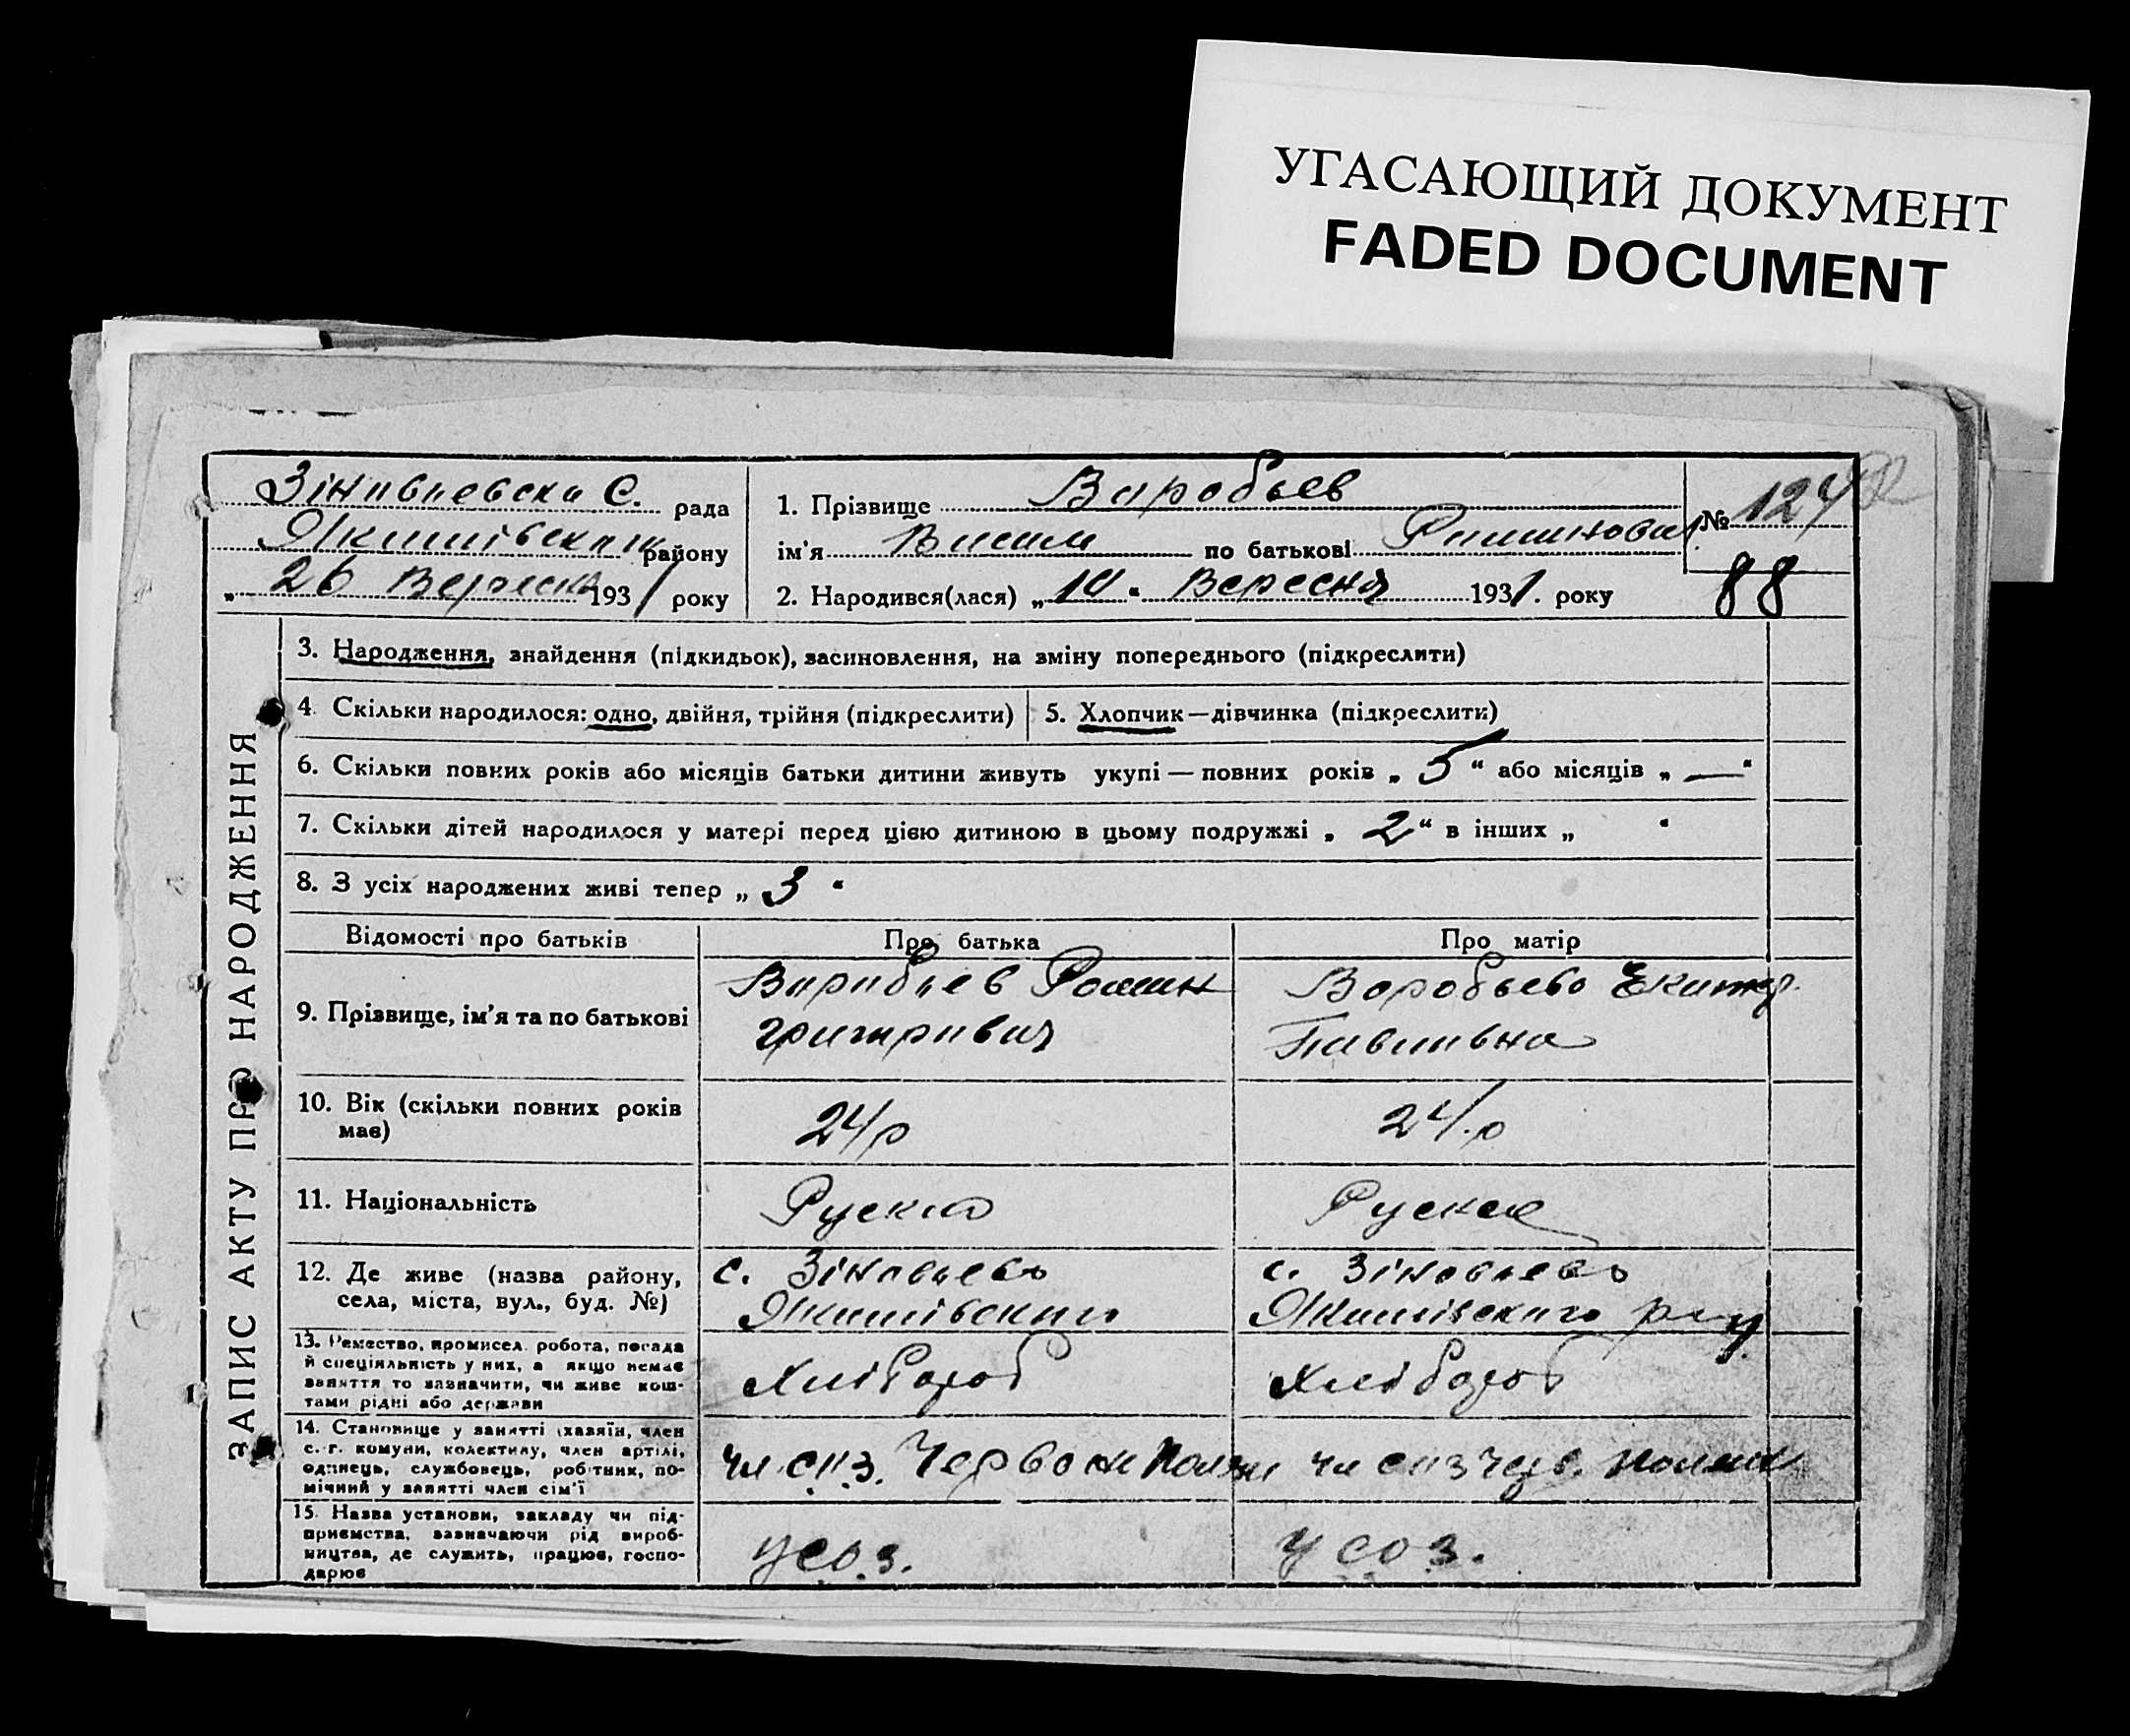 УГАСАЮЩИЙ ДОКУМЕНТ
FADED DOCUMENT
Зіновьевска С. рада
Якимівського району
„ 26 Вересня 1931 року
1. Прізвище Воробьев
ім'я Василь по батькові Романович
2. Народився(лася) „ 10 " Вересня 1931. року
№ 124
88
ЗАПИС АКТУ ПРО НАРОДЖЕННЯ
3. Народження, знайдення (підкидьок), засиновлення, на зміну попереднього (підкреслити)
4. Скільки народилося: одно, двійня, трійня (підкреслити)
5. Хлопчик—дівчинка (підкреслити)
6. Скільки повних років або місяців батьки дитини живуть укупі — повних років „ 5 " або місяців „ — "
7. Скільки дітей народилося у матері перед цією дитиною в цьому подружжі „ 2 " в інших „ "
8. З усіх народжених живі тепер „ 3 "
Відомості про батьків
Про батька
Про матір
9. Прізвище, ім'я та по батькові
Воробьев Роман
Григорович
Воробьево Екатер.
Павлівна
10. Вік (скільки повних років
має)
24/р
24/р
11. Національність
Руский
Руская
12. Де живе (назва району,
села, міста, вул., буд. №)
с. Зіновьево
Якимівского
с. Зіновьево
Якимівского р-ну
13. Ремество, промисел, робота, посада
й спеціяльність у них, а якщо немає
заняття то зазначити, чи живе кош-
тами рідні або держави
Хлібороб
Хлібороб
14. Становище у занятті (хазяїн, член
с.-г. комуни, колективу, член артілі,
одинець, службовець, робітник, по-
мічний у занятті член сім'ї
чл соз. Червон
чл соз Черв.
15. Назва установи, закладу чи під-
приємства, зазначаючи рід вироб-
ництва, де служить, працює, госпо-
дарює
у соз.
у соз.